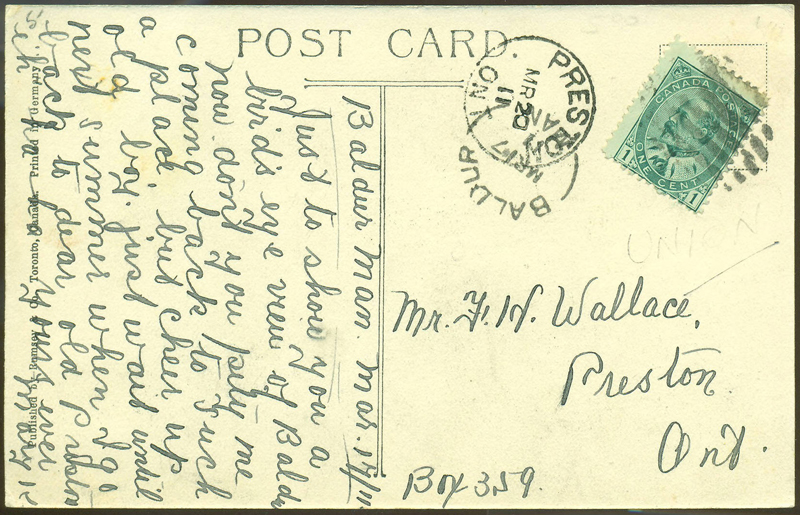 POST CARD.
Baldur Man. Mar. 17/11
Just to show you a
bird's eye view of Baldur
now don't you pity me
coming back to such
a place but cheer up
old boy. just wait until
next summer when I go
back to dear old Preston
eh
yours ever
Published by Rumsey & Co., Toronto, Canada. Printed in Germany.
PRESTON
MR 20
11
ONT
BALDUR
MR 17
MAN
CANADA POSTAGE
1 ONE CENT 1
UNION
Mr. F. H. Wallace,
Preston
Ont.
Box 359.